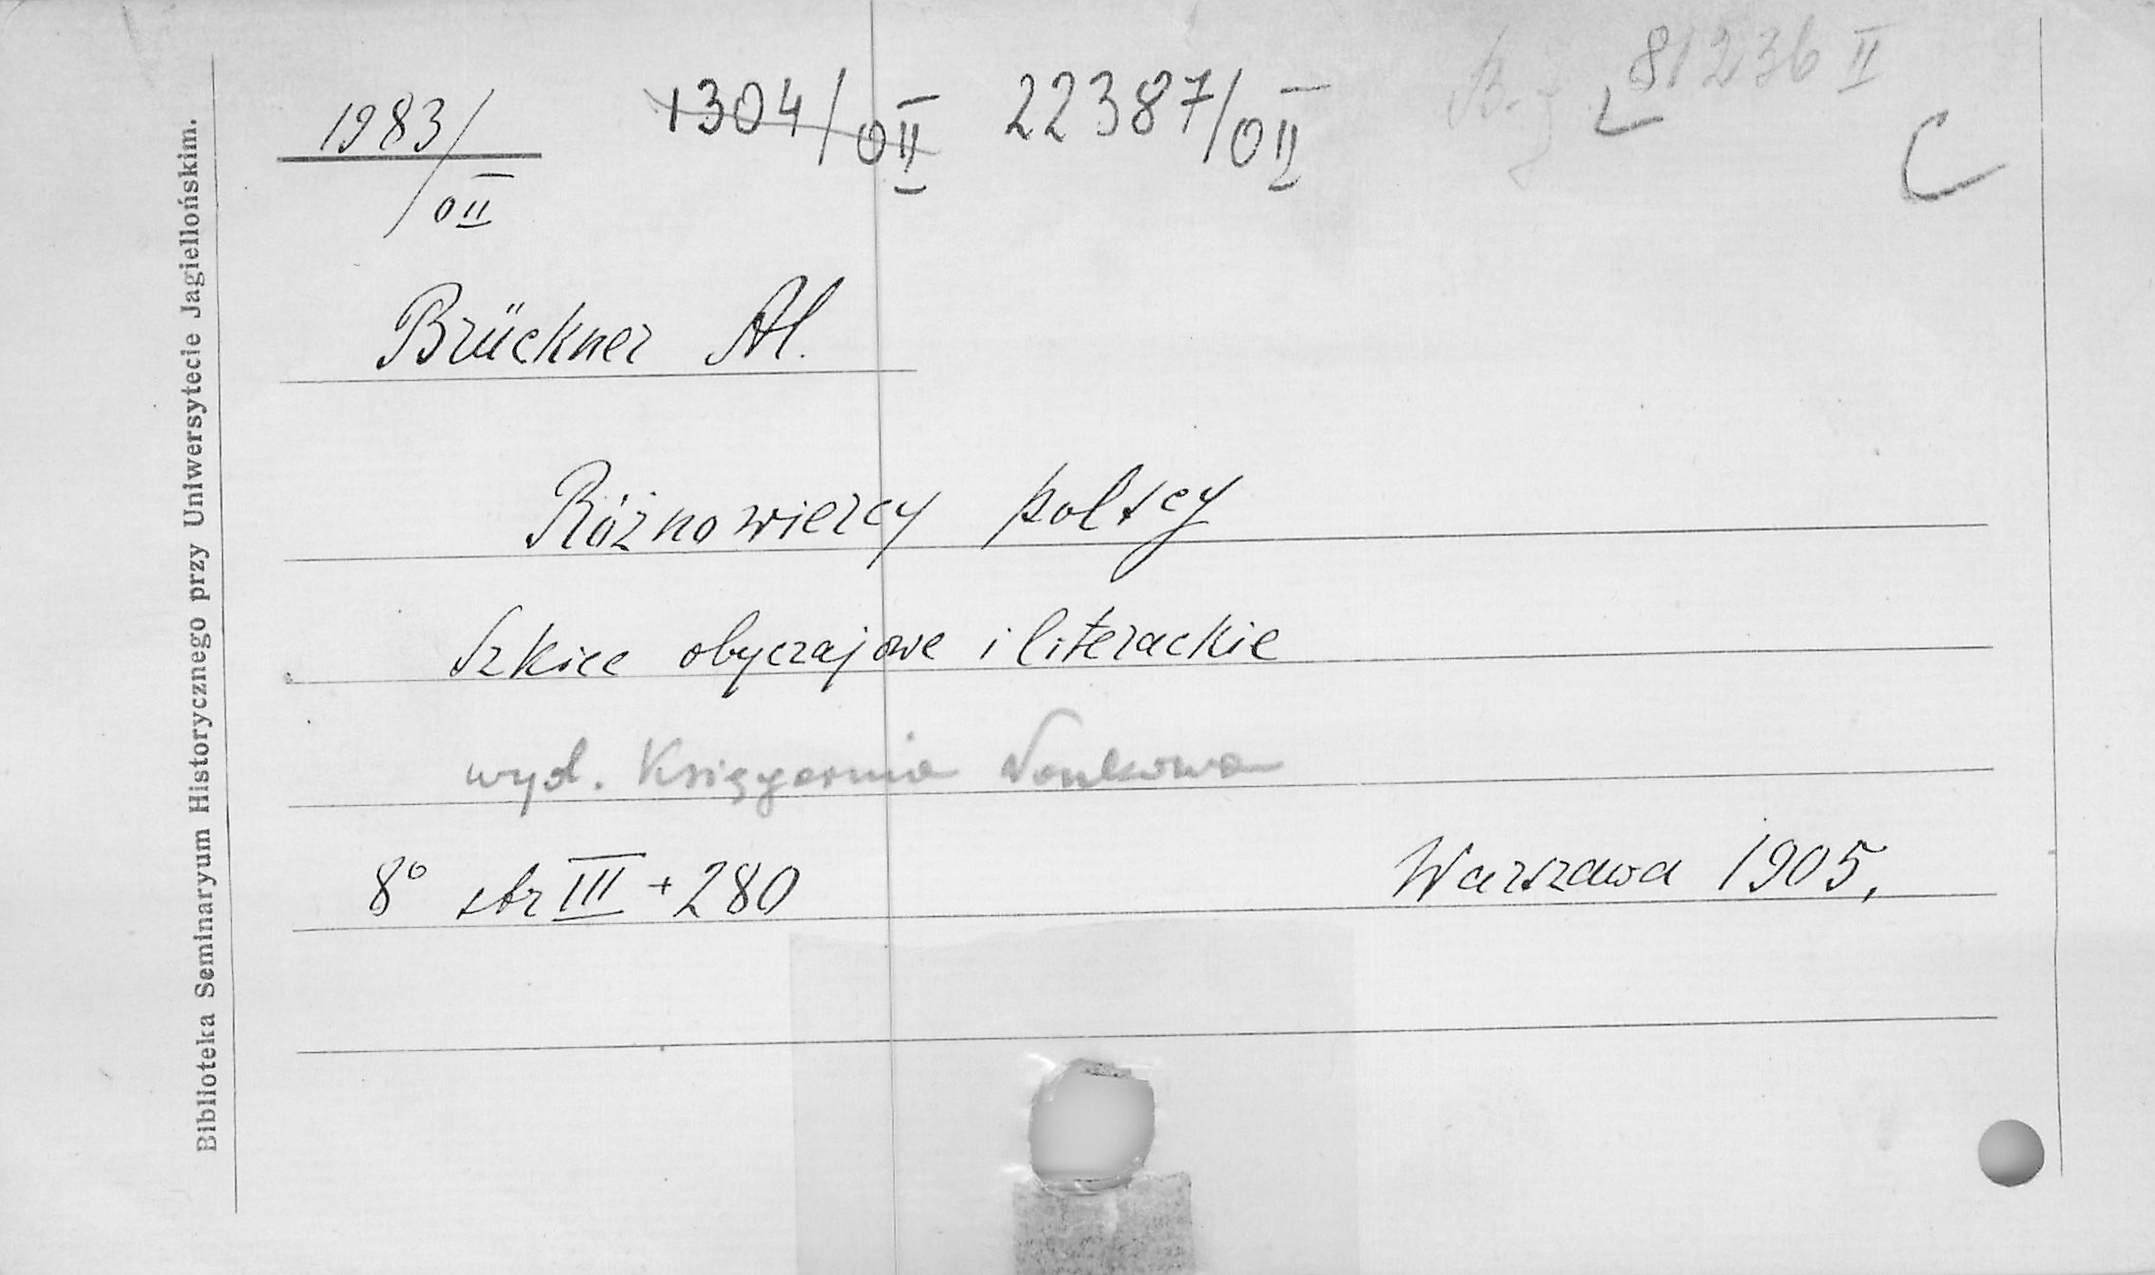 1983/OII 1304/OII 22387/OII B.J. 81236 II
C
Brückner Al.
Różnowiercy polscy
Szkice obyczajowe i literackie
wyd. Księgarnia Naukowa
8° str III + 280 Warszawa 1905,
Biblioteka Seminaryum Historycznego przy Uniwersytecie Jagiellońskim.